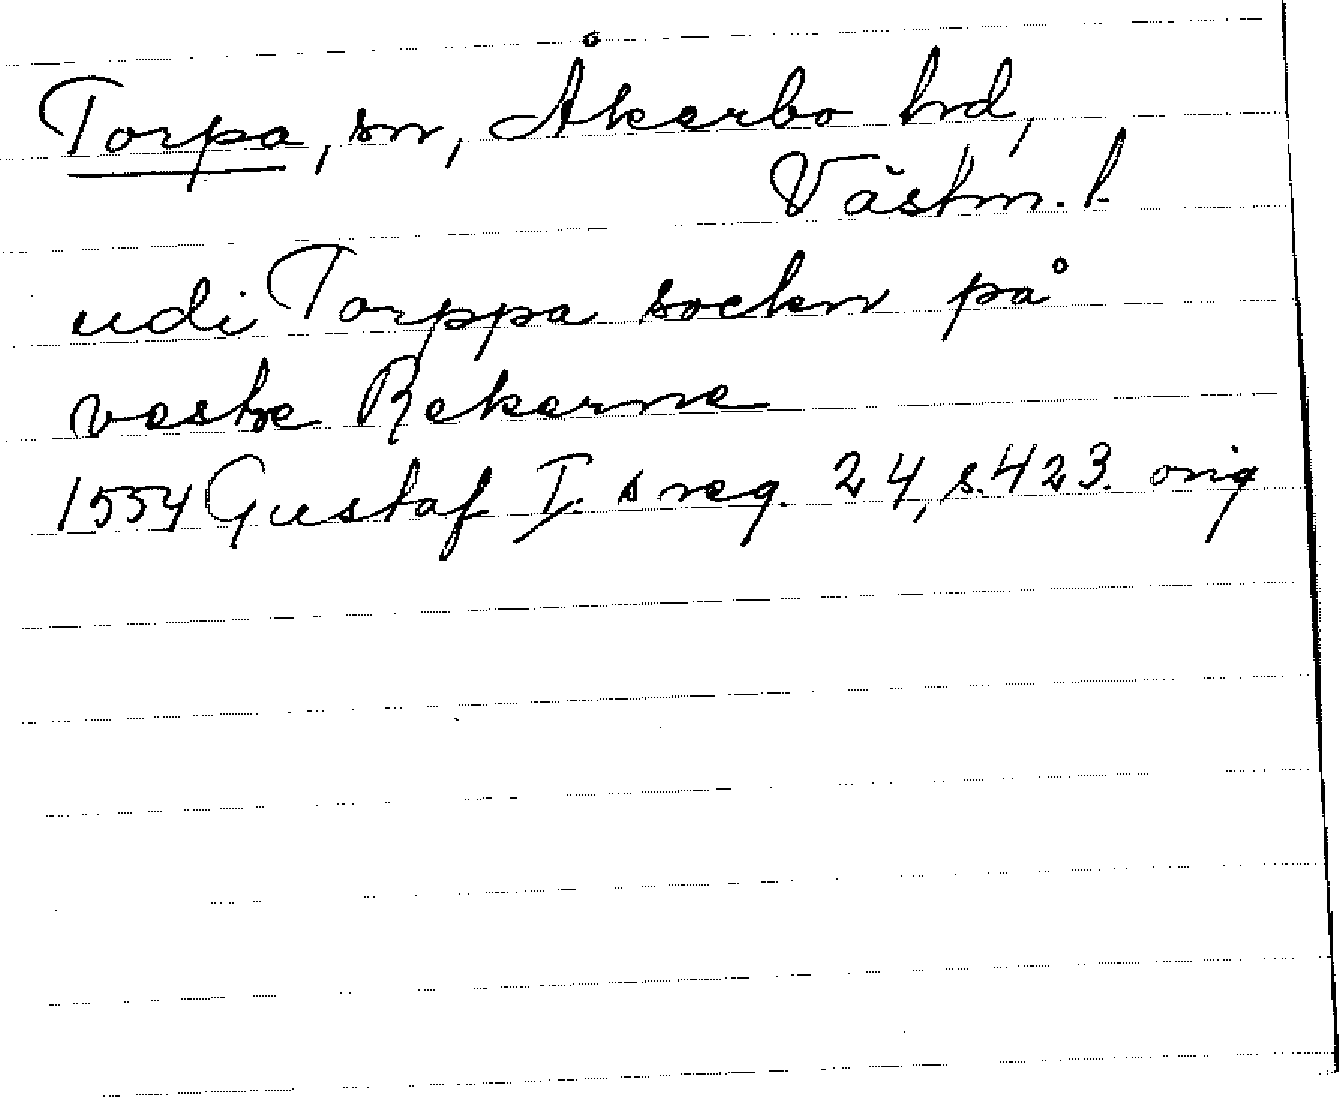 Torpa, sn, Åkerbo hrd,
Västm. l.
udi Torppa sockn på
vestre Rekarne
1554 Gustaf I:s reg. 24, s. 423. orig